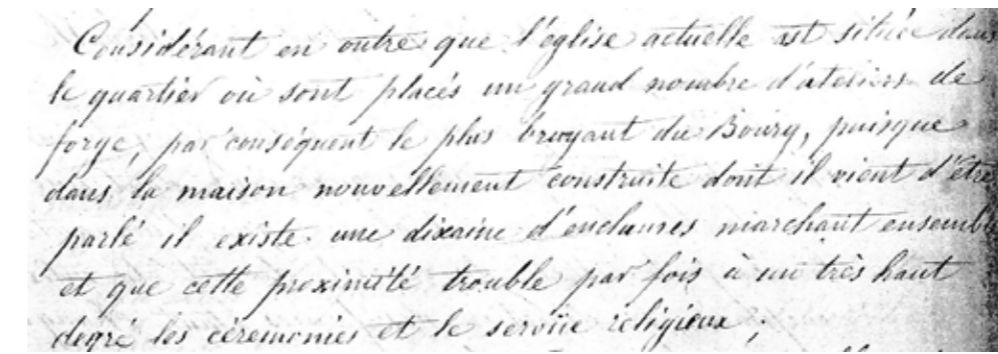 Considérant en outre que l'église actuelle est située dans
le quartier où sont placés un grand nombre d'ateliers de
forge, par conséquent le plus bruyant du Bourg, puisque
dans la maison nouvellement construite dont il vient d'être
parlé il existe une dixaine d'enclumes marchant ensemble
et que cette proximité trouble par fois à un très haut
degré les cérémonies et le service religieux ;